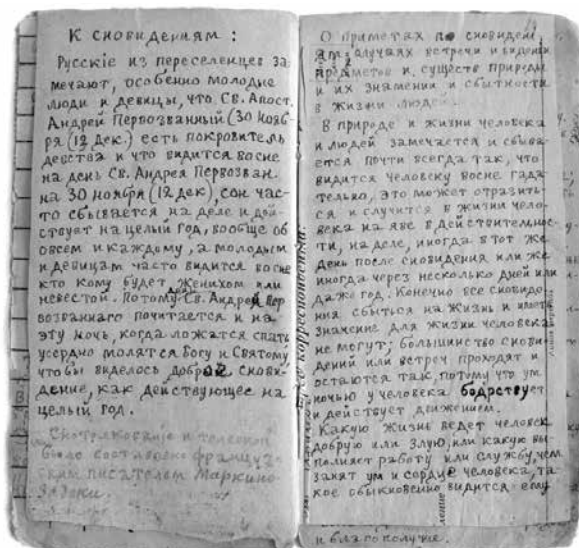 К СНОВИДЕНИЯМ:
Русскіе из переселенцев за
мечают, особенно молодые
люди и девицы, что Св. Апост.
Андрей Первозванный (30 нояб-
ря (12 Дек.) есть покровитель
девства и что видится восне
на день Св. Андрея Первозван.
на 30 ноября (12 дек), сон час-
то сбывается на деле и дей-
ствует на целый год, вообще об
овсем и каждому, а молодым
и девицам часто видится восне
кто кому будет женихом или
невестой. Потому Св. Андрей Пер
возваннаго почитается и на
эту ночь, когда ложатся спать
усердно молятся Богу и Святому
чтобы виделось доброе снови-
дение, как действующее на
целый год.
Снотолкование и
было составлено француз-
ским писателем
О приметах по сновидени
ям, случаях встречи и видении
предметов и существ природы
и их значении и сбытности
в жизни людей.
В природе и жизни человека
и людей замечается и сбыва-
ется почти всегда так, что
видится человеку восне гада-
тельно, это может отразить-
ся и случится в жизни чело-
века на яве в действительнос-
ти, на деле, иногда в тот же
день после сновидения или же
иногда через несколько дней или
даже год. Конечно все сновиде-
ния сбыться на жизнь и иметь
значение для жизни человека
не могут; большинство снови-
дений или встреч проходят и
остаются так, потому что ум
ночью у человека бодрствует
и действует движением.
Какую жизнь ведет человек
добрую или злую, или какую вы
полняет работу или службу, чем
занят ум и сердце человека, та
кое обыкновенно видится ему
и благополучие.